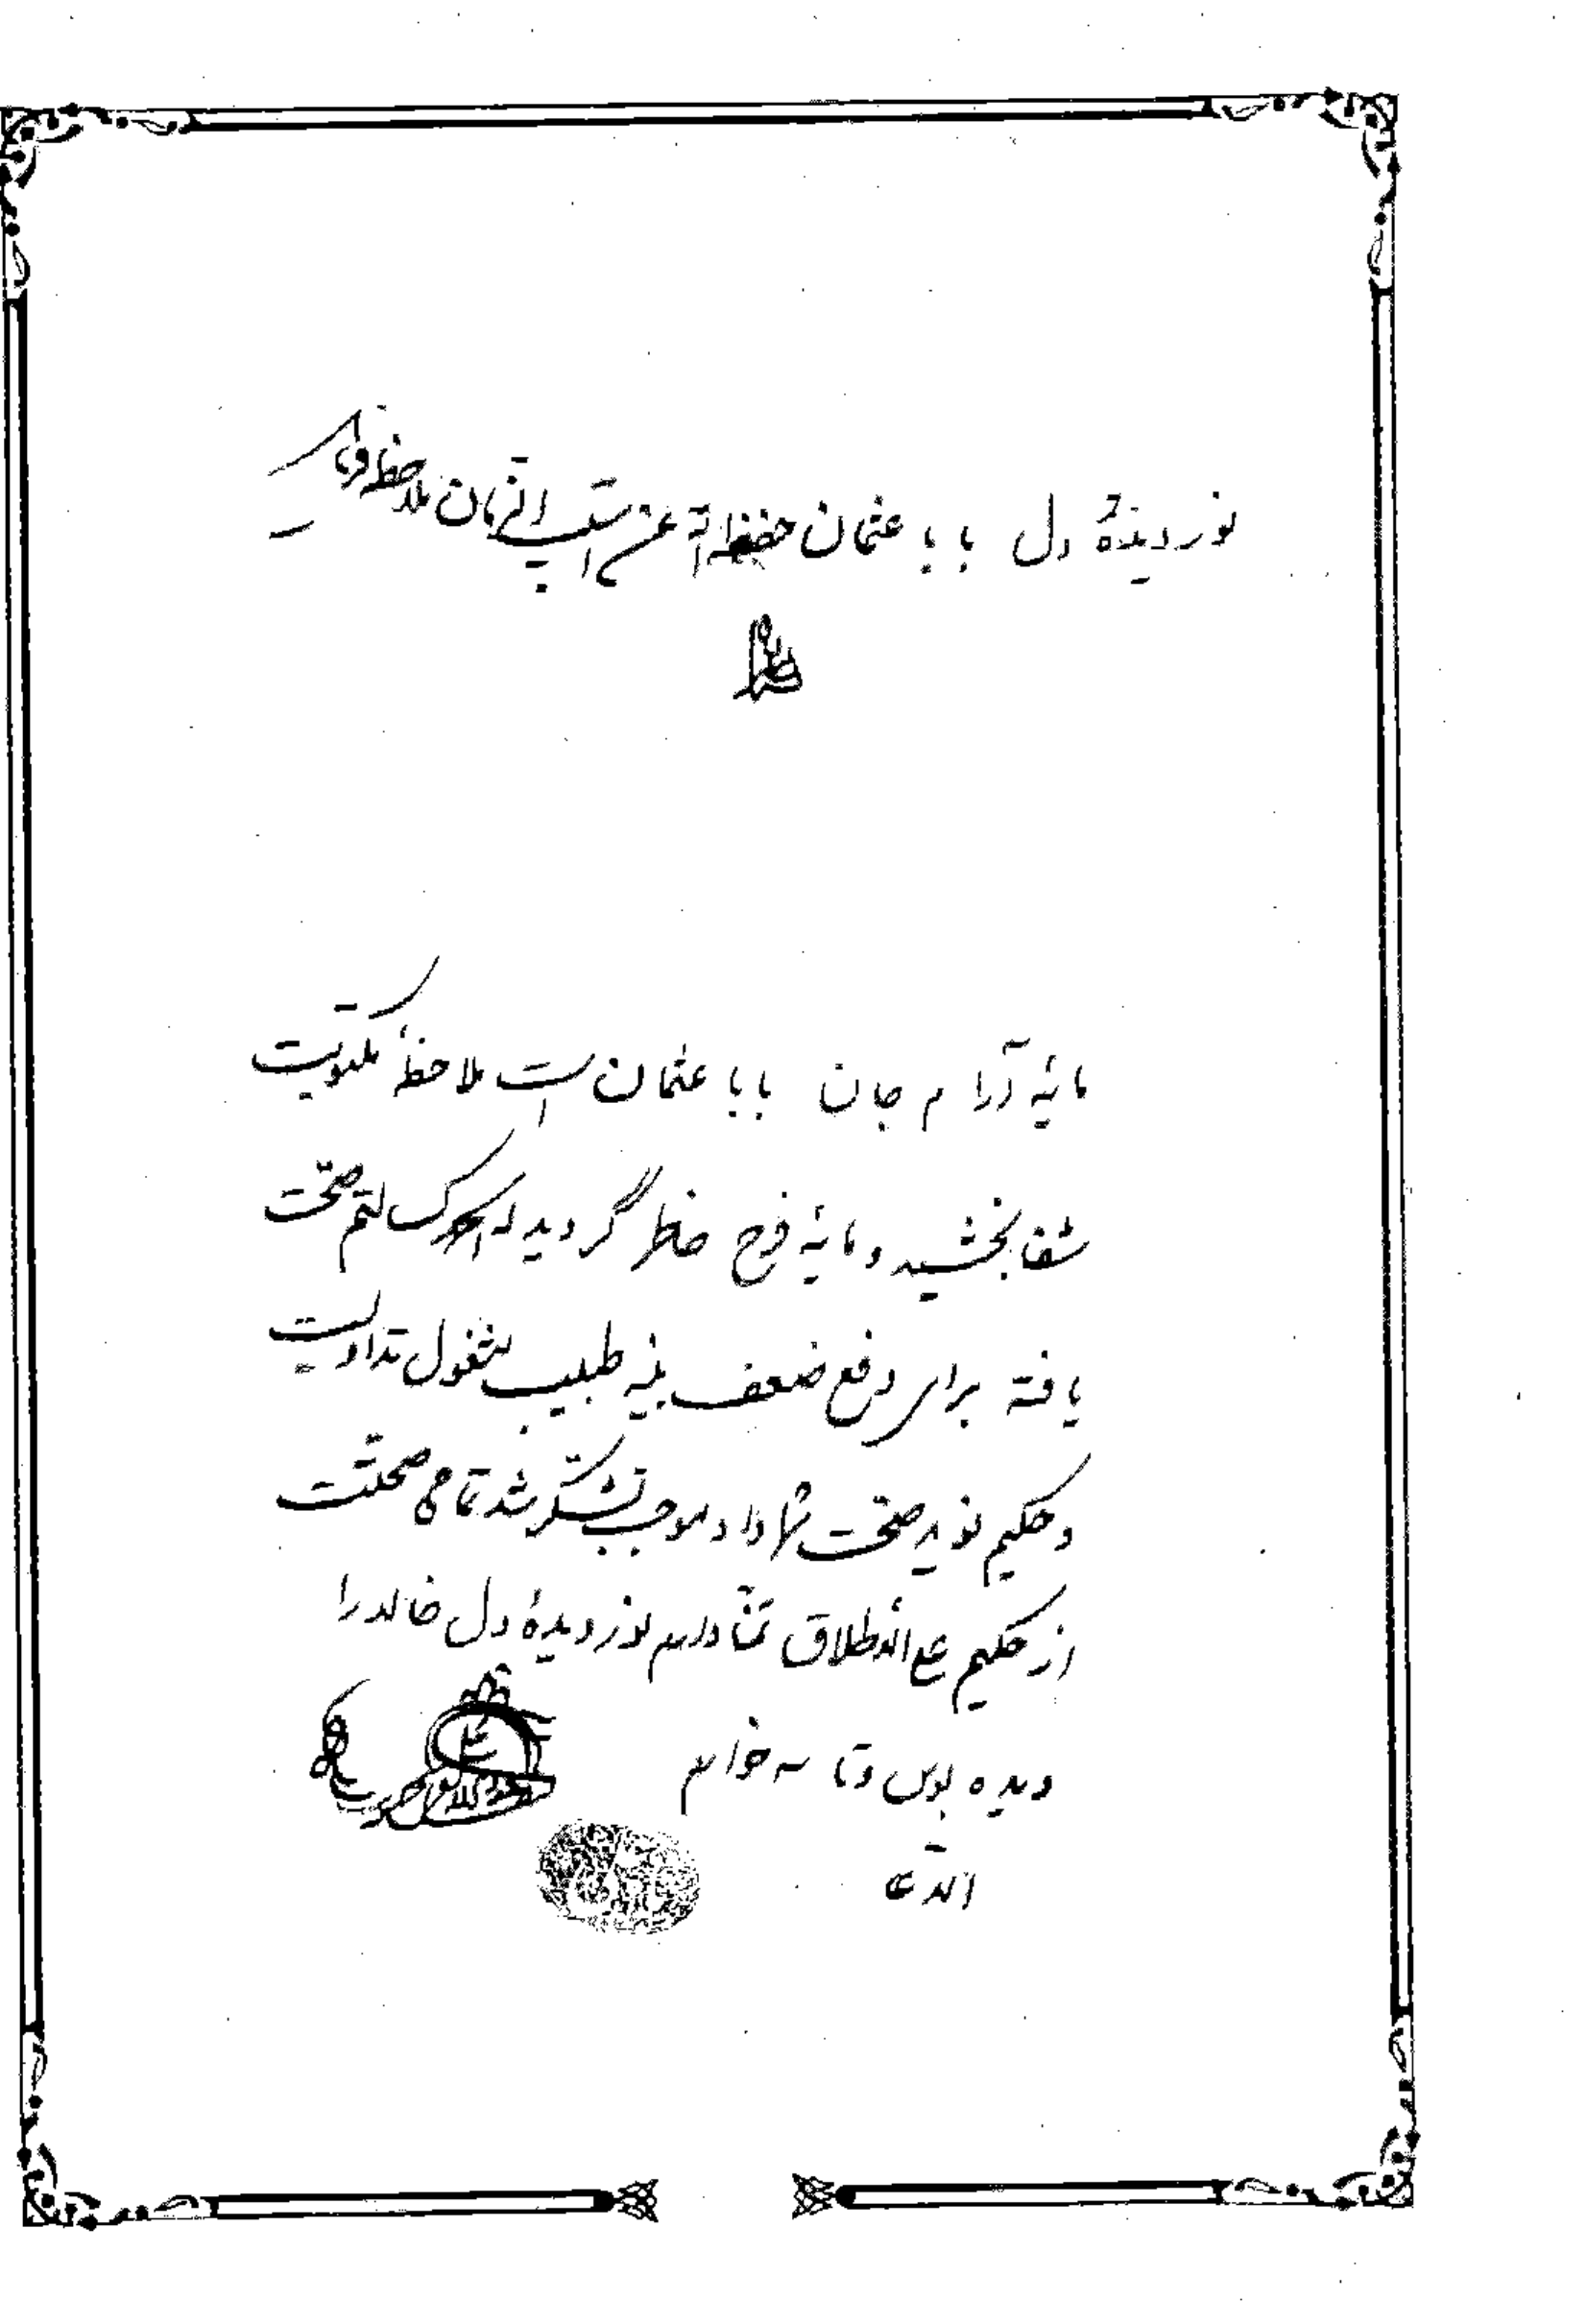 نور دیدهٔ دل بابا عثمان حفظه الله عن نوائب الزمان ملاحظه فرماید
مایه آرام جان بابا عثمان است ملاحظهٔ مکتوبت
شفا بخشید و مایه فرح خاطر گردید له الحمد کسالتم صحت
یافته برای دفع ضعف بنیه طبیب مشغول تداویست
و حکیم نوید صحت شما داد موجب تشکر شد تمامی صحتت
از حکیم علی الأطلاق تمنا دارم نور دیدهٔ دل خالد را
دیده بوس و تا سه خوانم
الدعا